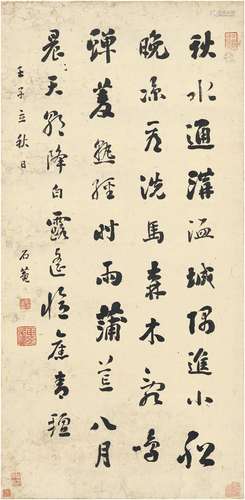 秋水通溝洫城隅進小船
晚涼看洗馬森木亂鳴
蟬菱熟經時雨蒲荒八月
晨天朝降白露遙憶舊青氈
壬子立秋日
石菴